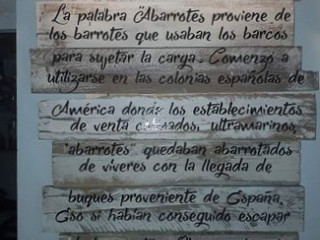 La palabra "Abarrotes proviene de
los barrotes que usaban los barcos
para sujetar la carga. Comenzó a
utilizarse en las colonias españolas de
América donde los establecimientos
de venta ultramarinos,
"abarrotes" quedaban abarrotados
de viveres con la llegada de
buques proveniente de España,
Eso si habían conseguido escapar